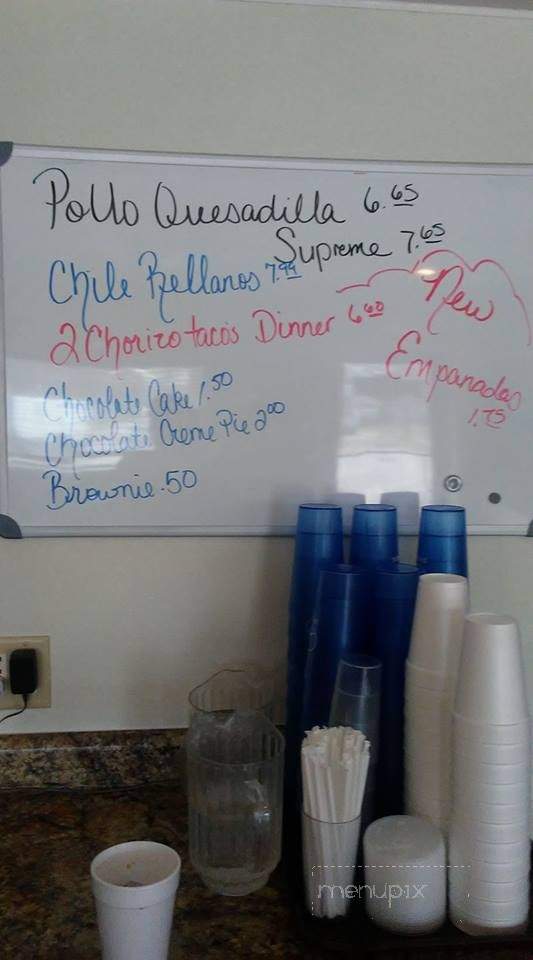 Pollo Quesadilla 6.65
Supreme 7.65
Chile Rellanos 7.99
2 Chorizo tacos Dinner 6.60
New
Empanadas
1.75
Chocolate Cake 1.50
Chocolate Creme Pie 2.00
Brownie .50
menupix